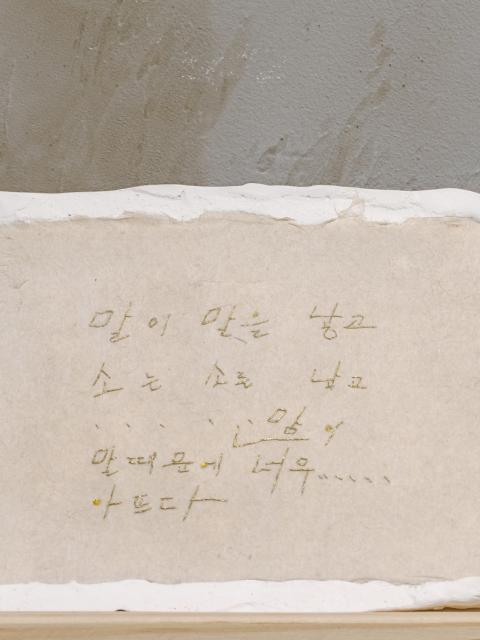 말이 말을 낳고
소는 소를 낳고
. . . . . . 맘이
말때문에 너무......
아프다